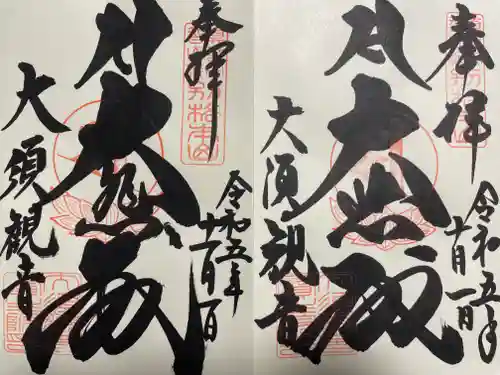 奉拝
令和五年
十一月一日
大悲殿
大須観音
奉拝
令和五年
十月一日
大悲殿
大須観音
別格本山